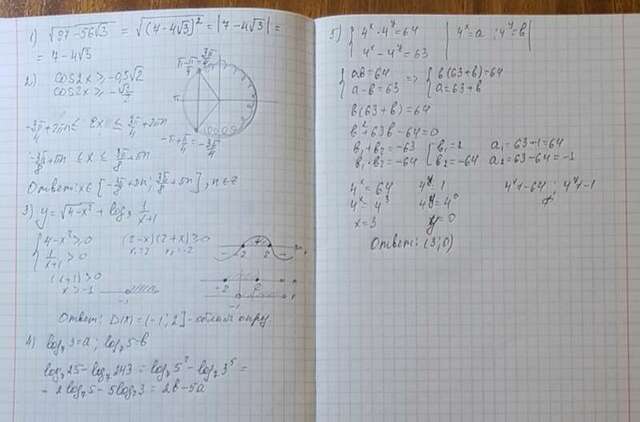 1) √(97-56√3) = √((7-4√3)²) = |7-4√3| =
= 7-4√3
2) cos2x ≥ -0,5√2
cos2x ≥ -√2/2
-3π/4+2πn ≤ 2x ≤ 3π/4+2πn
-3π/8+πn ≤ x ≤ 3π/8+πn
Ответ: x∈[-3π/8+πn; 3π/8+πn], n∈Z
3) y=√(4-x²) + log₃ 1/(x+1)
{ 4-x² ≥ 0 (2-x)(2+x) ≥ 0
1/(x+1) > 0
x > -1
-1
-2 2
-2 2
-1
Ответ: D(x) = (-1; 2] - облас опред
4) log₇3=a; log₇5=b
log₇25-log₇243 = log₇5²-log₇3⁵ =
= 2log₇5-5log₇3 = 2b-5a
5) { 4ˣ·4ʸ=64 | 4ˣ=a; 4ʸ=b |
4ˣ-4ʸ=63
{ ab=64 => { b(63+b)=64
a-b=63 a=63+b
b(63+b)=64
b²+63b-64=0
b₁+b₂=-63 [ b₁=1 a₁=63+1=64
b₁·b₂=-64 b₂=-64 a₂=63-64=-1
4ˣ=64 4ʸ=1 4ʸ≠-64; 4ˣ≠-1
4ˣ=4³ 4ʸ=4⁰
x=3 y=0
Ответ: (3;0)